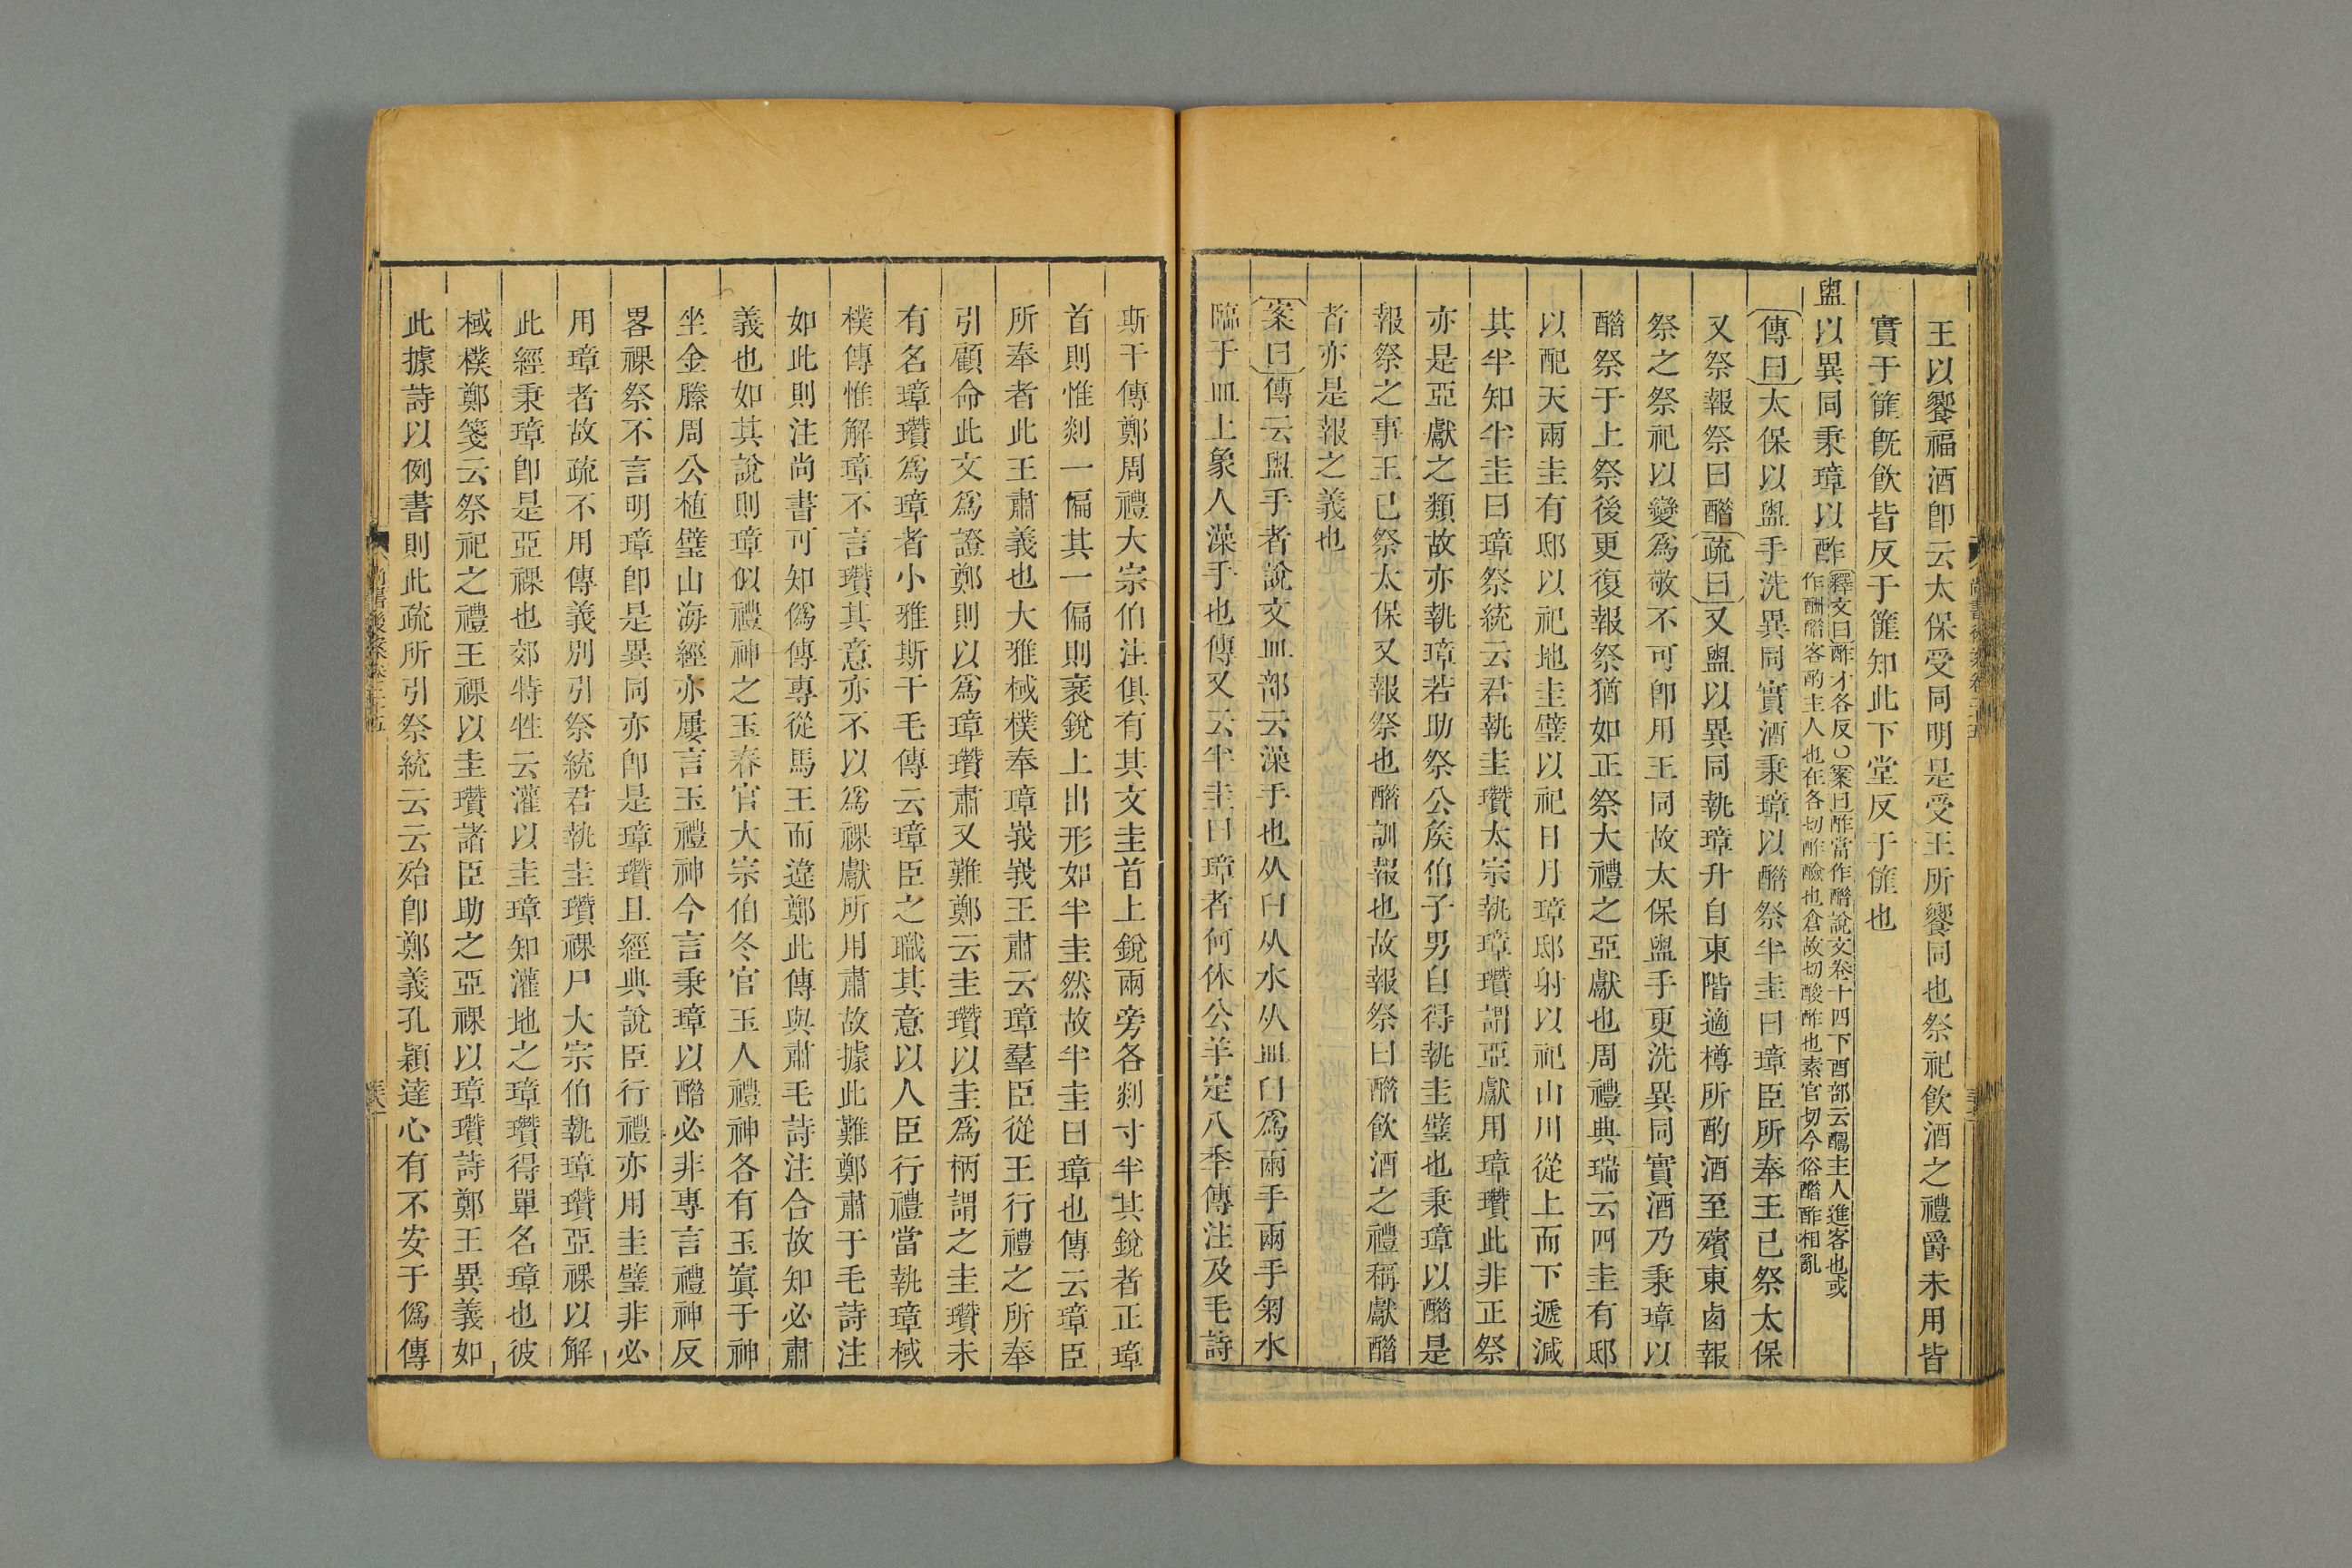 王以饗福酒卽云太保受同明是受王所饗同也祭祀飲酒之禮爵未用皆
實于篚旣飲皆反于篚知此下堂反于篚也
盥以異同秉璋以酢
釋文曰酢才各反○案曰酢當作醋說文卷十四下酉部云醻主人進客也或
作酬醋客酌主人也在各切酢醶也倉故切酸酢也素官切今俗醋酢相亂
傳曰太保以盥手洗異同實酒秉璋以醋祭半圭曰璋臣所奉王已祭太保
又祭報祭曰醋疏曰又盥以異同執璋升自東階適樽所酌酒至殯東卤報
祭之祭祀以變爲敬不可卽用王同故太保盥手更洗異同實酒乃秉璋以
醋祭于上祭後更復報祭猶如正祭大禮之亞獻也周禮典瑞云四圭有邸
以配天兩圭有邸以祀地圭璧以祀日月璋邸射以祀山川從上而下遞減
其半知半圭曰璋祭統云君執圭瓚太宗執璋瓚謂亞獻用璋瓚此非正祭
亦是亞獻之類故亦執璋若助祭公矦伯子男自得執圭璧也秉璋以醋是
報祭之事王已祭太保又報祭也醋訓報也故報祭曰醋飲酒之禮稱獻醋
者亦是報之義也
案曰傳云盥手者說文皿部云澡手也从臼从水从皿臼爲兩手兩手匊水
臨于皿上象人澡手也傳又云半圭曰璋者何休公羊定八季傳注及毛詩
斯干傳鄭周禮大宗伯注俱有其文圭首上銳兩旁各剡寸半其銳者正璋
首則惟剡一偏其一偏則衺銳上出形如半圭然故半圭曰璋也傳云璋臣
所奉者此王肅義也大雅棫樸奉璋峩峩王肅云璋羣臣從王行禮之所奉
引顧命此文爲證鄭則以爲璋瓚肅又難鄭云圭瓚以圭爲柄謂之圭瓚未
有名璋瓚爲璋者小雅斯干毛傳云璋臣之職其意以人臣行禮當執璋棫
樸傳惟解璋不言瓚其意亦不以爲祼獻所用肅故據此難鄭肅于毛詩注
如此則注尚書可知僞傳專從馬王而違鄭此傳與肅毛詩注合故知必肅
義也如其說則璋似禮神之玉春官大宗伯冬官玉人禮神各有玉寘于神
坐金縢周公植璧山海經亦屢言玉禮神今言秉璋以醋必非專言禮神反
畧祼祭不言明璋卽是異同亦卽是璋瓚且經典說臣行禮亦用圭璧非必
用璋者故疏不用傳義別引祭統君執圭瓚祼尸大宗伯執璋瓚亞祼以解
此經秉璋卽是亞祼也郊特牲云灌以圭璋知灌地之璋瓚得單名璋也彼
棫樸鄭箋云祭祀之禮王祼以圭瓚諸臣助之亞祼以璋瓚詩鄭王異義如
此據詩以例書則此疏所引祭統云云殆卽鄭義孔穎達心有不安于僞傳